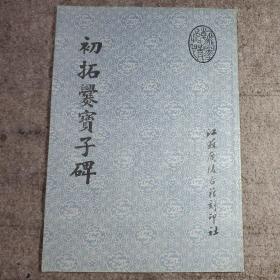 初拓爨寶子碑
江蘇廣陵古籍刻印社